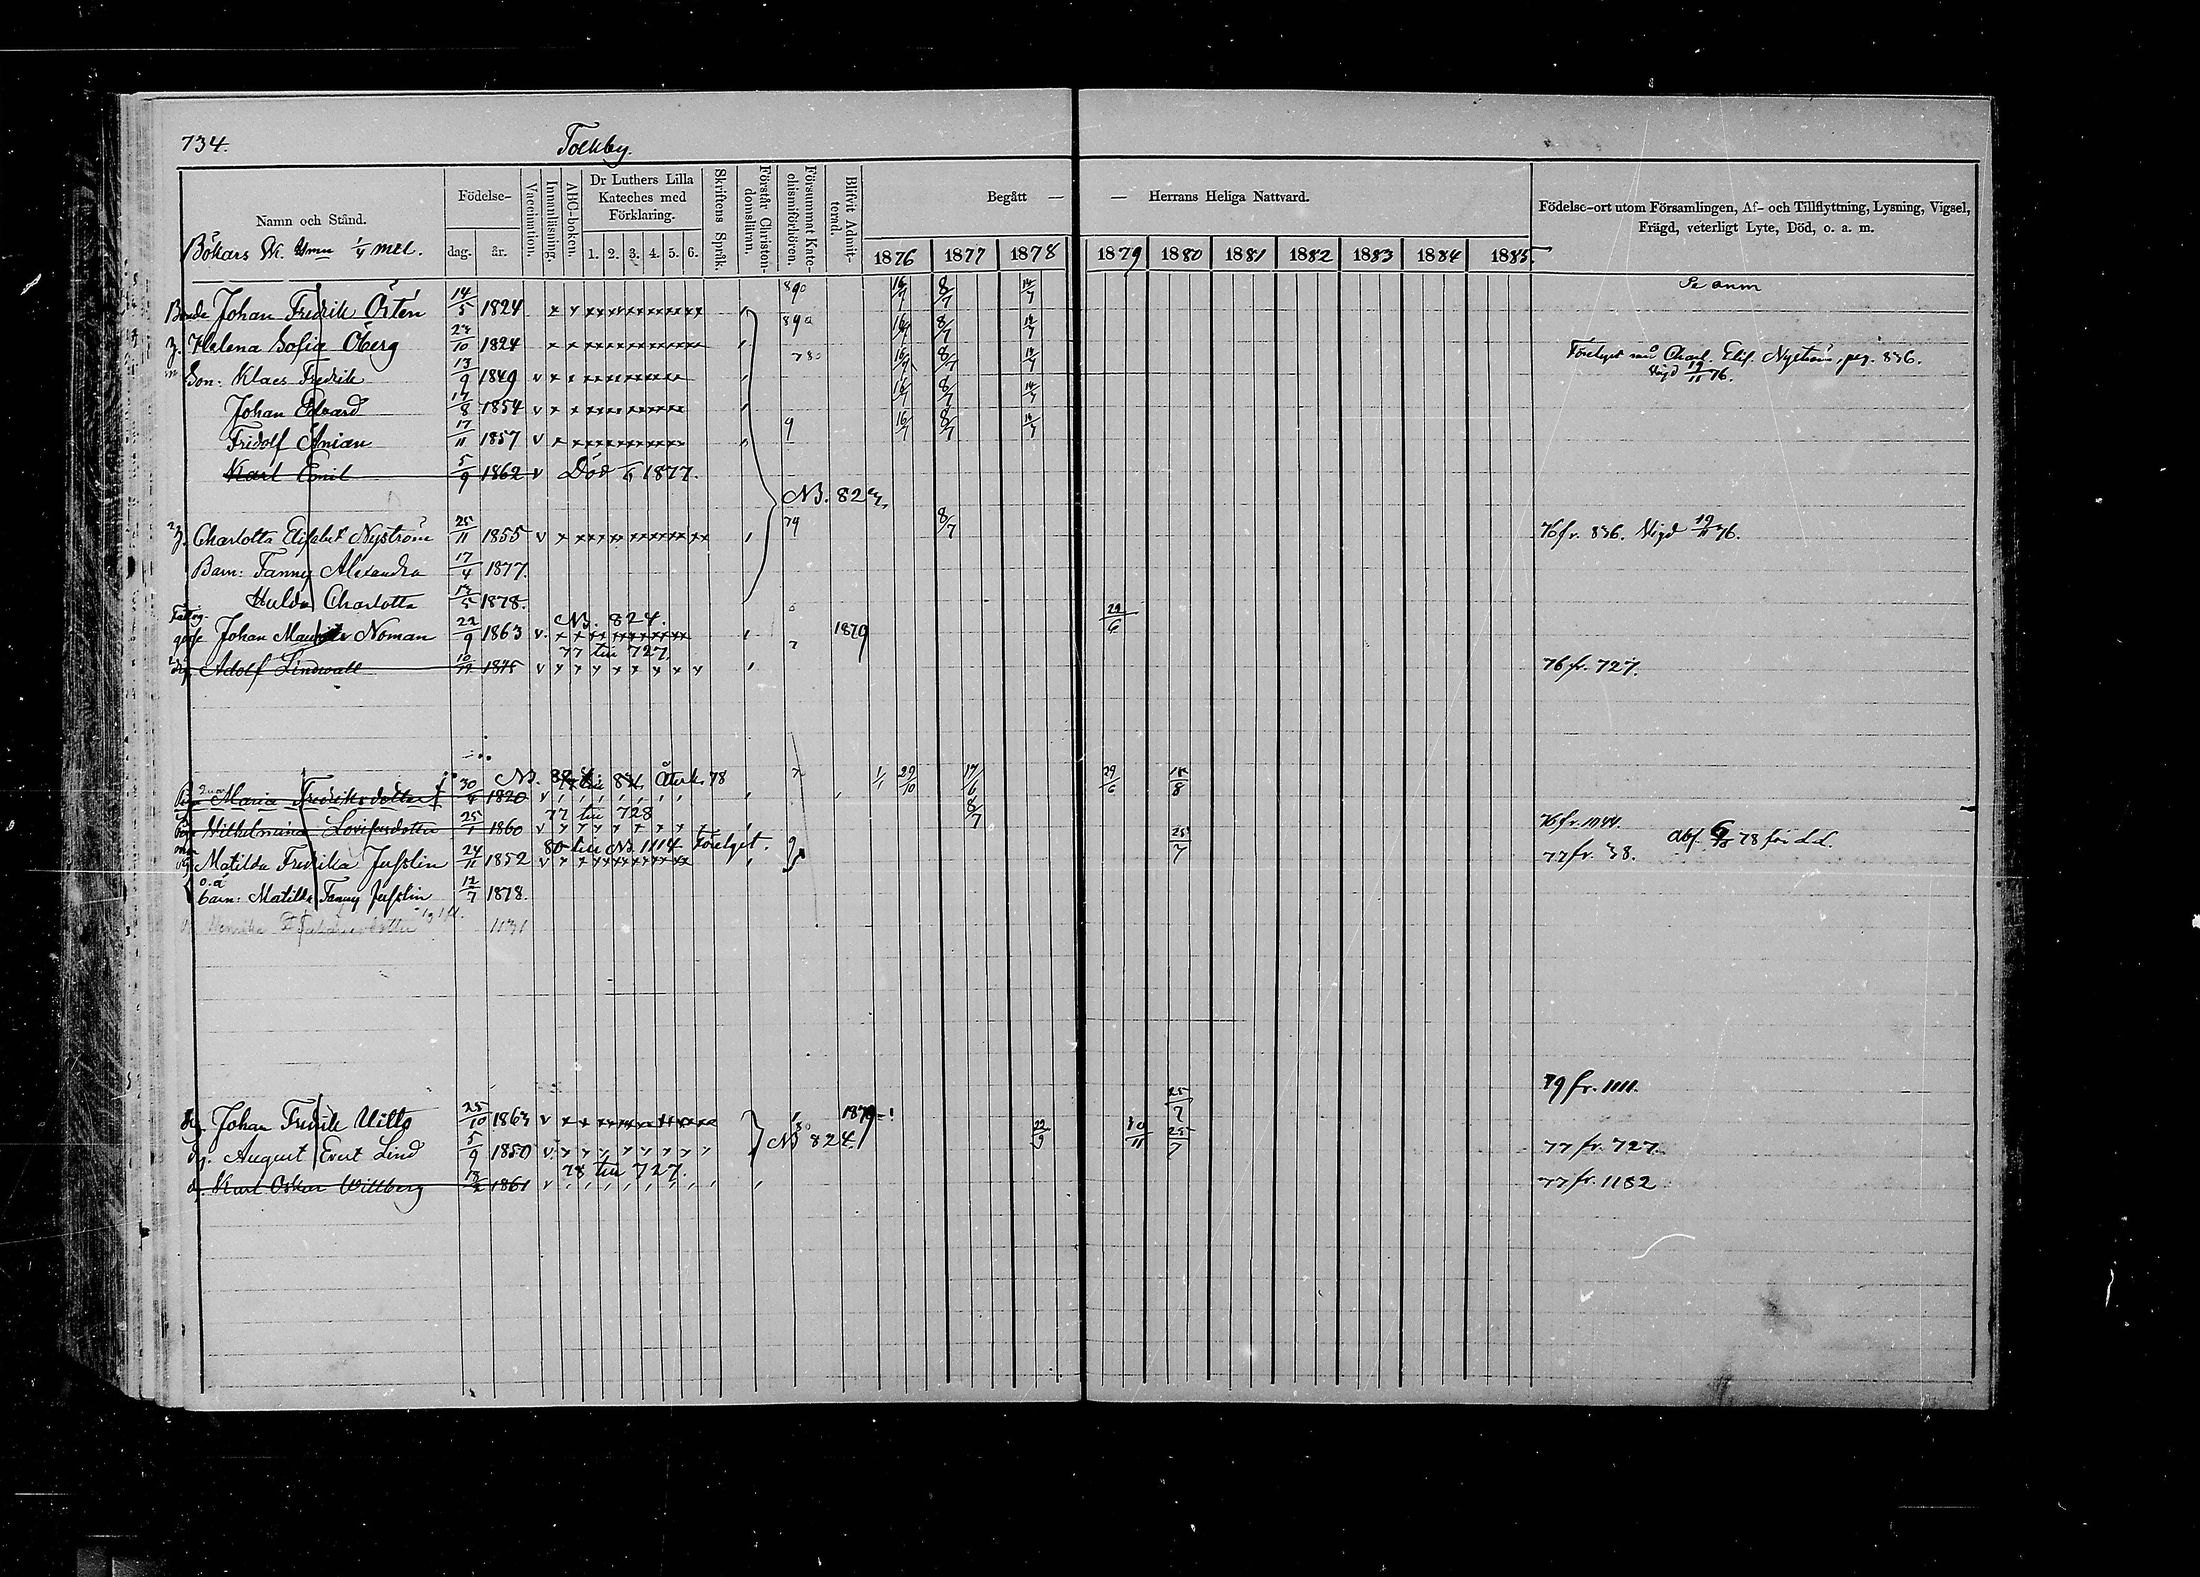 734.
Tackby.
Namn och Stånd.
Födelse-
dag.
år.
Vaccination.
Innanläsning.
ABC-boken.
Dr Luthers Lilla
Kateches med
Förklaring.
1. 2. 3. 4. 5. 6.
Skriftens Språk.
Förstår Christen-
domsläran.
Försummat Kate-
chismiförhören.
Blifvit Admit-
terad.
Begått — — Herrans Heliga Nattvard.
1876 1877 1878 1879 1880 1881 1882 1883 1884 1885
Födelse-ort utom Församlingen, Af- och Tillflyttning, Lysning, Vigsel,
Frägd, veterligt Lyte, Död, o. a. m.
Bökars 1/4 mel.
Se anm
Bonde Johan Fredrik Östen 14/5 1824 16/7 8/7 14/7
Helena Sofia Öberg 1824 16/7 8/7 14/7
Son: Klaes Fredrik 13/9 1849 v 16/7 8/7 14/7 Förelyst Charl. Elis. Nyström, pag. 836.
Vigd 19/11 76.
Johan Edvard 17/8 1854 v 16/7 8/7 14/7
Fridolf Anian 17/11 1857 v 9 16/7 8/7 14/7
Karl Emil 5/9 1862 v Död 1877.
NB. 823
Charlotta Elisabet Nyström 25/11 1855 v 79 8/7 76 fr. 836. Vigd 19/11 76.
Barn: Fanny Alexandra 17/4 1877.
Hulda Charlotta 1878.
NB. 824.
Johan Noman 22/9 1863 v. 1879 29/6
77 till 727.
Adolf Lindwall v 76 fr. 727.
Återk. 78
Maria Fredriksdotter 30/4 1820 v 29/10 17/6 29/6 18/8
77 till 728
Vilhelmina Lovisasdotter 25/1 1860 v 8/7 76 fr. 1044.
80 till NB. 1114 förelyst.
Matilda Fredrika Jusslin 1852 v 25/7 77 fr. 38. 78
o.ä
barn: Matilda Fanny Jusslin 12/7 1878.
79 fr. 1111.
Johan Fredrik 25/10 1863 v 1879 25/7
August Evert Lind 5/9 1850 v NB 824. 22/9 25/7 77 fr. 727.
78 till 727.
Karl Oskar Wittberg 1861 v 77 fr. 1182